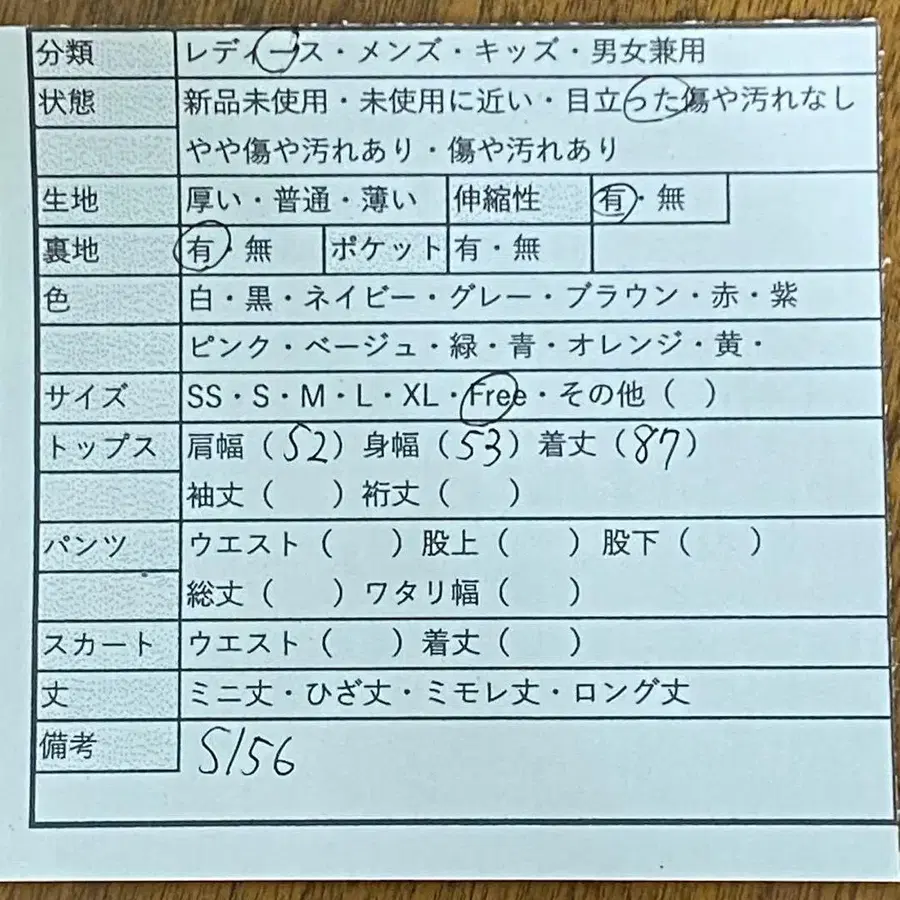 分類 レディース・メンズ・キッズ・男女兼用
状態 新品未使用・未使用に近い・目立った傷や汚れなし
やや傷や汚れあり・傷や汚れあり
生地 厚い・普通・薄い 伸縮性 有・無
裏地 有・無 ポケット 有・無
色 白・黒・ネイビー・グレー・ブラウン・赤・紫
ピンク・ベージュ・緑・青・オレンジ・黄・
サイズ SS・S・M・L・XL・Free・その他（ ）
トップス 肩幅（52）身幅（53）着丈（87）
袖丈（ ）裄丈（ ）
パンツ ウエスト（ ）股上（ ）股下（ ）
総丈（ ）ワタリ幅（ ）
スカート ウエスト（ ）着丈（ ）
丈 ミニ丈・ひざ丈・ミモレ丈・ロング丈
備考 S156